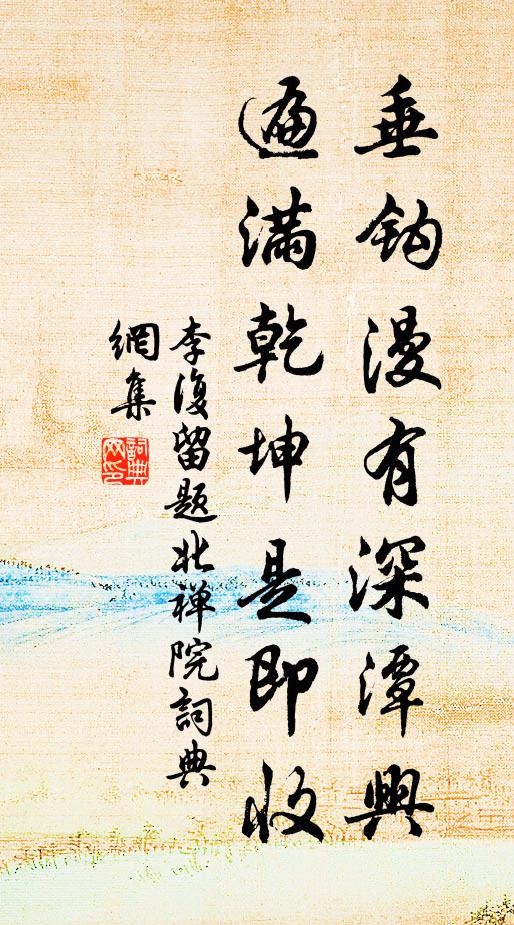 垂鈎漫有深潭興
遍滿乾坤是即收
李復留題北禅院詞典
網集
詞典
网印